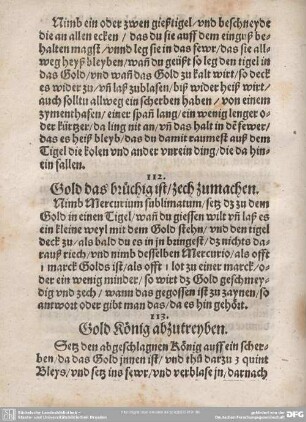 Nimb ein oder zwen gießtigel / vnd beschneyde
die an allen ecken / das du sie auff dem eingruß be-
halten magst / vnnd leg sie in das fewr / das sie all-
weg heyß bleyben / wañ du geüßt so leg den tigel in
das Gold / vnd wañ das Gold zu kalt wirt / so deck
es wider zu / vñ laß zublasen / biß wider heiß wirt /
auch soltu allweg ein scherben haben / von einem
zymenthasen / einer span lang / ein wenig lenger o-
der kürtzer / da ling nit an / vñ das halt in dē fewer /
das es heiß bleyb / das du damit raumest auß dem
Tigel die kolen vnd ander vnrein ding / die da hin-
ein fallen.
112.
Gold das brüchig ist / zech zumachen.
Nimb Mercurium sublimatum / setz dz zu dem
Gold in einen Tigel / wañ du giessen wilt vñ laß es
ein kleine weyl mit dem Gold stehn / vnd den tigel
deck zu / als bald du es in jn bringest / dz nichts da-
rauß riech / vnd nimb desselben Mercurio / als offt
1 marck Golds ist / als offt 1 lot zu einer marck / o-
der ein wenig minder / so wirt dz Gold geschmey-
dig vnd zech / wann das gegossen ist zu zaynen / so
antwort oder gibt man das / da es hin gehört.
113.
Gold König abzutreyben.
Setz den abgeschlagnen König auff ein scher-
ben / da das Gold jnnen ist / vnd thů darzu 3 quint
Bleys / vnd setz ins fewr / vnd verblase jn / darnach